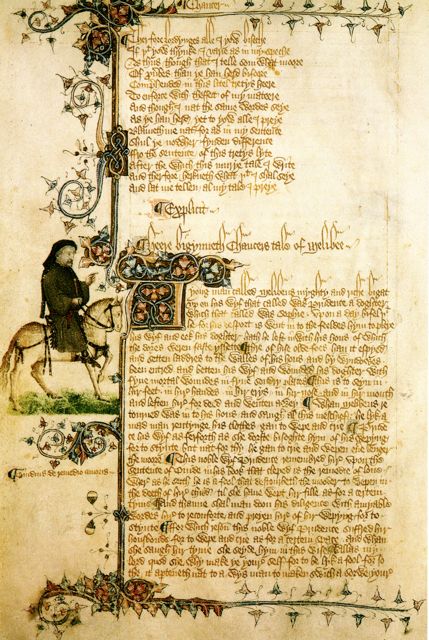 Chaucer
Therfore lordynges alle I yow biseche
If þt yow thynke I varie as in my speche
As thus though that I telle som what moore
Of prouerbes than ye han herd bifoore
Comprehended in this litel tretys heere
To enforce with theffect of my mateere
And though I nat the same wordes seye
As ye han herd yet to yow alle I preye
Blameth me nat for as in my sentence
Shul ye nowher fynden difference
Fro the sentence of this tretys lyte
After the which this murye tale I write
And therfore herkneth what þt I shal seye
And lat me tellen al my tale I preye
Explicit
Heere bigynneth Chaucers tale of Melibee
A yong man called Melibeus myghty and riche bigat
vp on his wyf that called was Prudence a doghter
which that called was Sophie / Vpon a day bifel
he for his desport is went in to the feeldes hym to pleye
his wyf and eek his doghter hath he left inwith his hous of which
the dores weren faste yshette Thre of hise olde foos han it espyed
and setten laddres to the walles of his hous and by wyndowes
been entred and betten his wyf and wounded his doghter with
fyue mortal woundes in fyue sondry places This is to seyn in
hir feet in hir handes in hir erys in hir nose and in hir mouth
and leften hir for deed and wenten awey Whan Melibeus re
torned was in to his hous and saugh al this meschief he lyk a
mad man rentynge his clothes gan to wepe and crie Prude
ce his wyf as ferforth as she dorste bisoghte hym of his wepyng
for to stynte but nat for thy he gan to crie and wepen euer lenger
the moore This noble wyf Prudence remembred hire vpon the
sentence of Ouide in his book that cleped is the remedie of loue
wher as he seith he is a fool that destourbeth the mooder to wepen in
the deeth of hir child til she haue wept hir fille as for a certein
tyme and thanne shal man doon his diligence with amyable
wordes hire to reconforte and preyen hire of hir wepyng for to
stynte For which resoun this noble wyf Prudence suffred hir
housbonde for to wepe and crie as for a certein space and whan
she saugh hir tyme she seyde hym in this wise Allas my
lord quod she why make ye youre self for to be lyk a fool for so
the it aperteneth nat to a wys man to maken swich a sorwe youre
Ouidius de remedio amoris